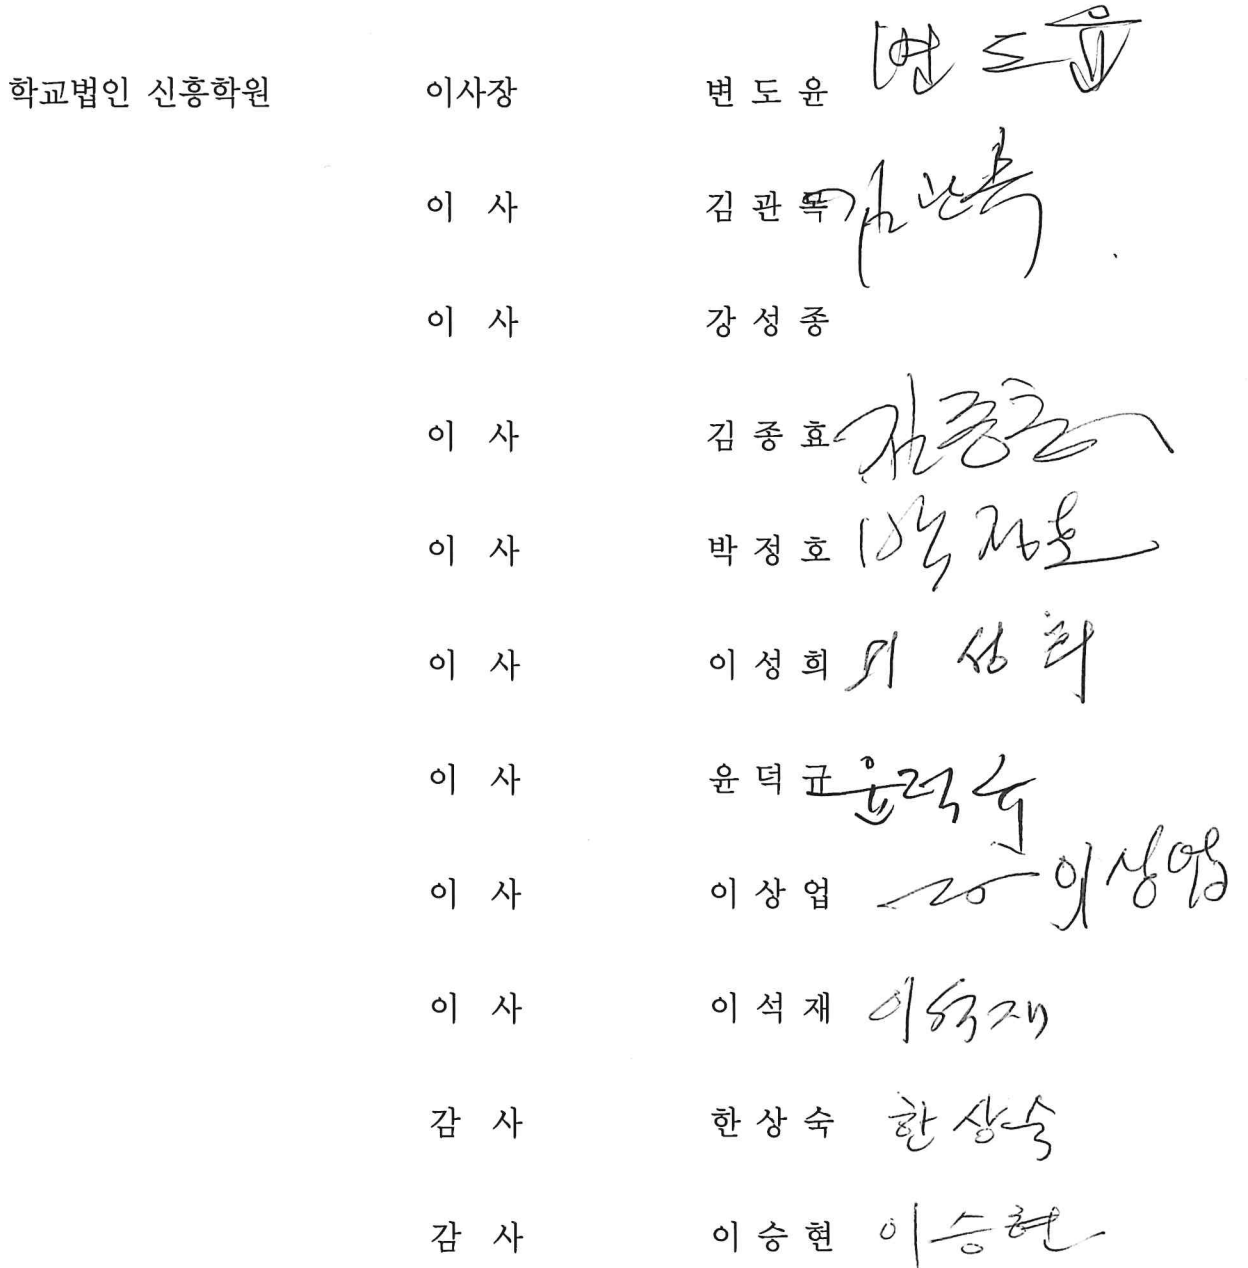 학교법인 신흥학원 이사장 변 도 윤 변 도 윤
이 사 김 관 목 김관목
이 사 강 성 종
이 사 김 종 효 김종효
이 사 박 정 호 박정호
이 사 이 성 희 이 성 희
이 사 윤 덕 규 윤덕규
이 사 이 상 업 이상업
이 사 이 석 재 이석재
감 사 한 상 숙 한상숙
감 사 이 승 현 이승현